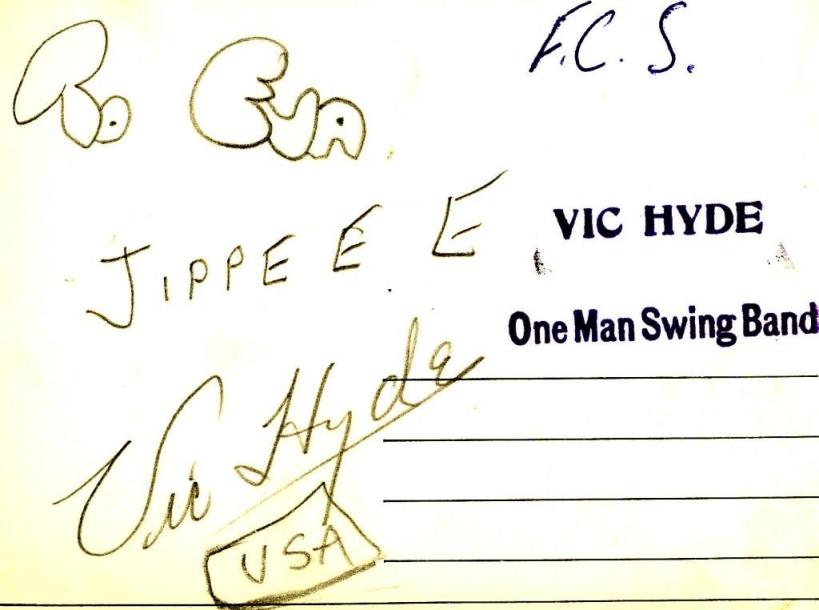 F.C. S.
To EVA
JIPPE E E
VIC HYDE
One Man Swing Band
Vic Hyde
USA